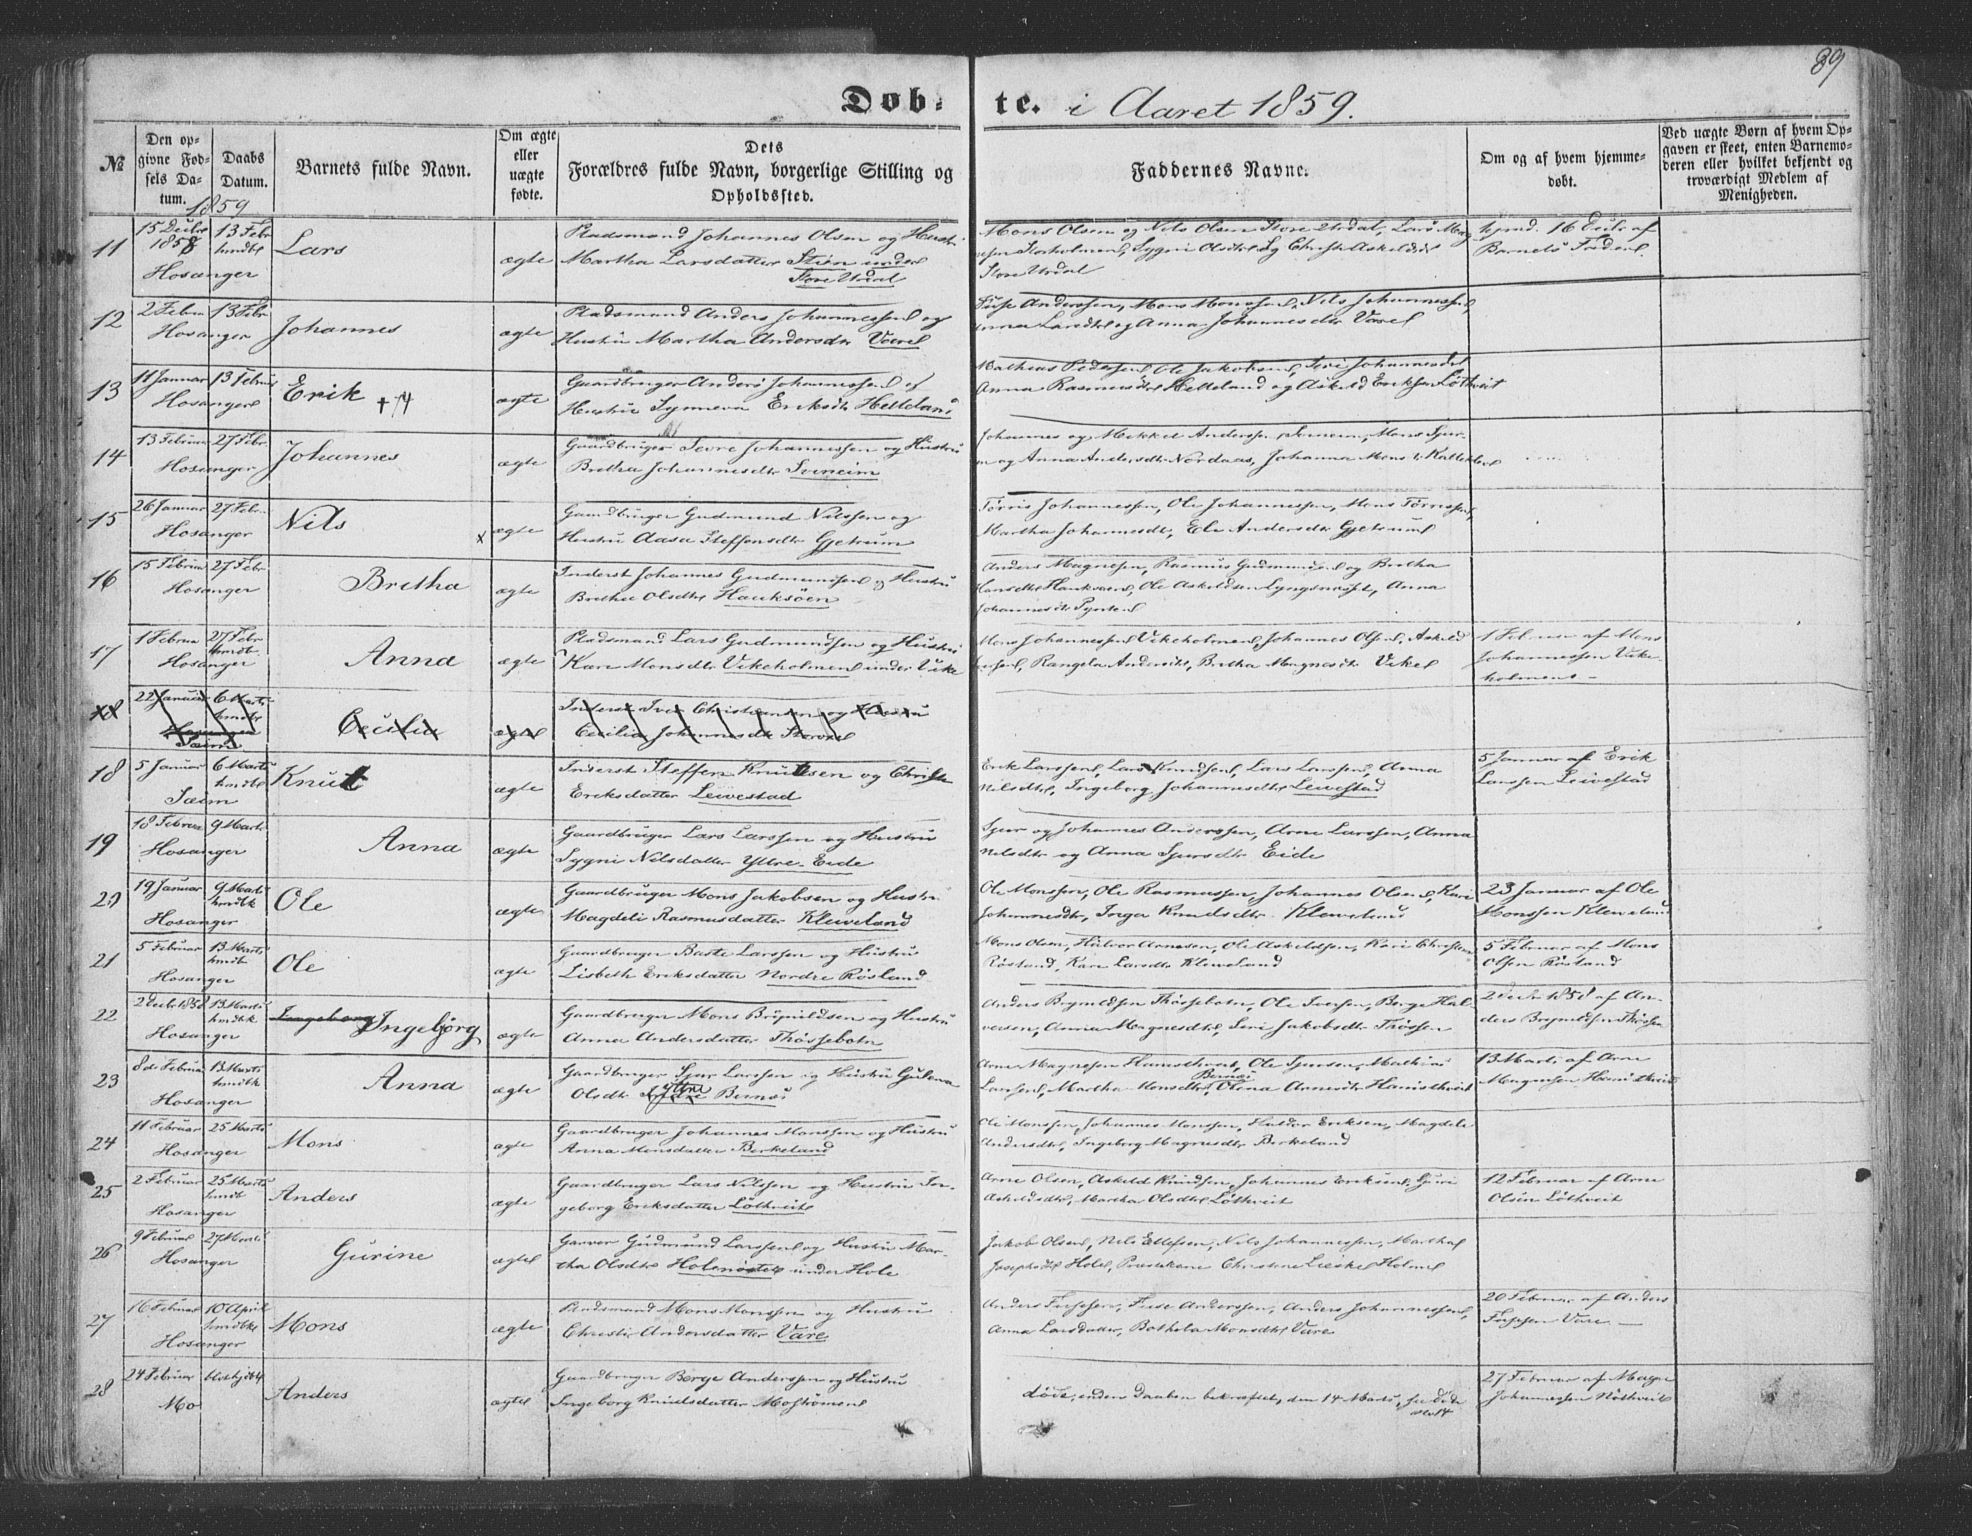 89
Døb- te. i Aaret 1859.
№
Den op-
givne Fød-
sels Da-
tum.
Daabs
Datum.
Barnets fulde Navn.
Om ægte
eller
uægte
fødte.
Dets
Forældres fulde Navn, borgerlige Stilling og
Opholdssted.
Faddernes Navne.
Om og af hvem hjemme-
døbt.
Ved uægte Børn af hvem Op-
gaven er skeet, enten Barnemo-
deren eller hvilket bekjendt og
troværdigt Medlem af
Menigheden.
1859
11 15 Decbr 1858 13 Febr hmdbt Hosanger Lars ægte
Pladsmand Johannes Olsen og Hustr
Martha Larsdatter Stien under
Store Urdal
Mons Olsen og Nils Olsen Store Urdal, Lars
Store Urdal
hjmd. 16 Decbr af
Barnets Fader
12 2 Febru 13 Febr Hosanger Johannes ægte
Pladsmand Anders Johannessen og
Hustru Martha Andersdtr Varel
Fuse Anderssen, Mons Monssen, Nils Johannessen,
Larsdtr og Anna Johannesdtr Varel
13 11 Januar 13 Februar Hosanger Erik ægte
Gaardbruger Anders Johannessen og
Hustru Synneva Eriksdtr Helleland
Mathias Pedersen, Ole Jakobsen, Johannesdtr
Anna Rasmusdtr Helleland og Askeld Eriksen Løthveit
14 13 Februar 27 Febr Hosanger Johannes ægte
Gaardbruger Sevre Johannessen og Hustru
Bretha Johannesdtr Sveneim
Johannes og Mikkel Anderssen
og Anna Andersdtr Nordaas, Johanna Mons
15 26 Januar 27 Febr. Hosanger Nils x ægte
Gaardbruger Gudmund Nilssen og
Hustru Aasa Steffensdtr Gjetrum
Tørris Johannessen, Ole Johannessen, Mons Tørrissen,
Martha Johannesdtr, Eli Andersdtr Gjetrum
16 15 Februar 27 Febr Hosanger Bretha ægte
Inderst Johannes Gudmundsen og Hustru
Bretha Olsdtr Hauksøen
Anders Magnesen, Rasmus Gudmundsen og Bretha
Ole Askeldsen Anna
Johannesdtr
17 1 Februa 27 Febr hmdbt Hosanger Anna ægte
Pladsmand Lars Gudmundssen og Hustru
Kari Monsdtr Vikeholmen under Vike
Mons Johannessen Vikeholmen, Johannes Olsen, Askeld
Rangela Andersdtr, Bretha Magnesdtr Vikel
1 Februar af Mons
Johannessen Vike-
holmen –
18 22 Januar 6 Marts hmdbt Sæim Cecilia ægte
Inderst Iver Christiansen og Hustru
Cecilia Johannesdtr
18 5 Januar 6 Marts hmdbt Sæim Knut ægte
Inderst Steffen Knutsen og Christe
Eriksdatter Leivestad
Erik Larssen, Lars Knudsen, Lars Larssen, Anna
Nilsdtr, Ingeborg Johannesdtr Leivestad
5 Januar af Erik
Larssen Leivestad
19 18 Februar 9 Marts Hosanger Anna ægte
Gaardbruger Lars Larssen og Hustru
Sygni Nilsdatter Yttre-Eide
Sjur og Johannes Anderssen, Arne Larssen, Anna
Nilsdtr og Anna Sjursdtr Eide
20 19 Januar 9 Marts hmdbt Hosanger Ole ægte
Gaardbruger Mons Jakobsen og Hustru
Magdeli Rasmusdatter Kleiveland
Ole Monssen, Ole Rasmussen, Johannes Olsen, Kari
Johannesdtr, Inger Knudsdtr Kleiveland
23 Januar af Ole
Monssen Kleiveland
21 5 Februar 13 Marts hmdbt Hosanger Ole ægte
Gaardbruger Baste Larssen og Hustru
Lisbeth Eriksdatter Nordre Røsland
Mons Olsen, Halvor Arnesen, Ole Askeldsen, Kari
Røsland, Kari Larsdtr Kleiveland
5 Februar af Mons
Olsen Røsland
22 2 Decbr 1858 13 Marts hmdbt Hosanger Ingeborg Ingebjørg ægte
Gaardbruger Mons Brynildsen og Hustru
Anna Andersdatter Thøssebotn
Anders Brynildsen Thøssebotn, Ole Iversen, Berge Hal-
vorsen, Anna Magnesdtr, Siri Jakobsdtr Thøssen
2 Decbr 1858 af An-
ders Brynildsen
23 8de Februar 13 Marts hmdbt Hosanger Anna ægte
Gaardbruger Sjur Larssen og Hustru Gulena
Olsdtr Indre Yttre Bernæs
Arne Magnesen Ole Sjursen, Mathias
Larssen, Martha Monsdtr Bernæs, Olena Arnesdtr
13 Marts af Arne
Magnesen
24 11 Februar 25 Marts Hosanger Mons ægte
Gaardbruger Johannes Monssen og Hustru
Anna Monsdatter Birkeland
Ole Monssen, Johannes Monssen, Haldor Eriksen, Magdeli
Andersdtr, Ingeborg Magnesdtr Birkeland
25 2 Februar 25 Marts hmdbt Hosanger Anders ægte
Gaardbruger Lars Nilssen og Hustru In-
geborg Eriksdatter Løthveit
Arne Olsen, Askeld Knudsen, Johannes Eriksen, Guri
Askeldsdtr, Martha Olsdtr Løthveit
12 Februar af Arne
Olsen Løthveit
26 9 Februar 27 Marts Hosanger Gurine ægte
Garver Gudmund Larssen og Hustru Mar-
tha Olsdtr Holenøstet under Hole
Jakob Olsen, Nils Ellefsen, Nils Johannessen, Martha
Josephsdtr Hole, Christine
27 16 Februar 10 April hmdbt Hosanger Mons ægte
Pladsmand Mons Monssen og Hustru
Christi Andersdatter Vare
Anders Fussen, Fuse Anderssen, Anders Johannessen,
Anna Larsdatter, Bothilla Monsdtr Vare
20 Februar af Anders
Fussen Vare –
28 24 Februar Mo Anders ægte
Gaardbruger Berge Anderssen og Hustru
Ingeborg Knudsdatter Mostrømen
døde, inden Daaben bekræftet, den 14 Marts, se døde
No 14
27 Februar af Magne
Johannessen Nøthveit